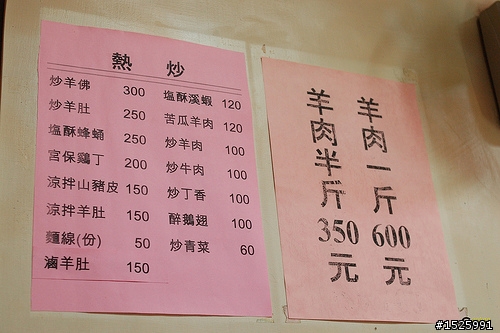 熱 炒
炒羊佛 300
炒羊肚 250
塩酥蜂蛹 250
宮保鷄丁 200
涼拌山豬皮 150
涼拌羊肚 150
麵線(份) 50
滷羊肚 150
塩酥溪蝦 120
苦瓜羊肉 120
炒羊肉 100
炒牛肉 100
炒丁香 100
醉鵝翅 100
炒青菜 60
羊肉一斤600元
羊肉半斤350元
#1525991